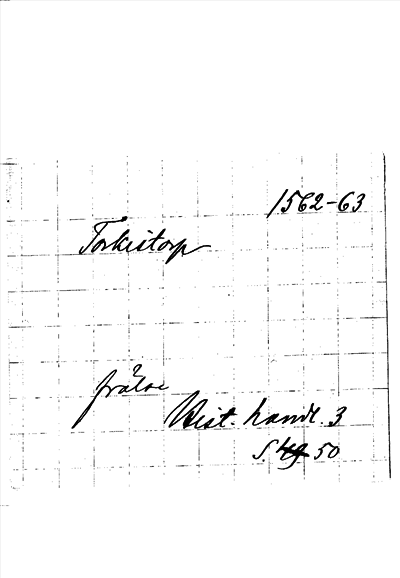 1562-63
Torkestorp
frälse
Hist. handl. 3
S. 49 50